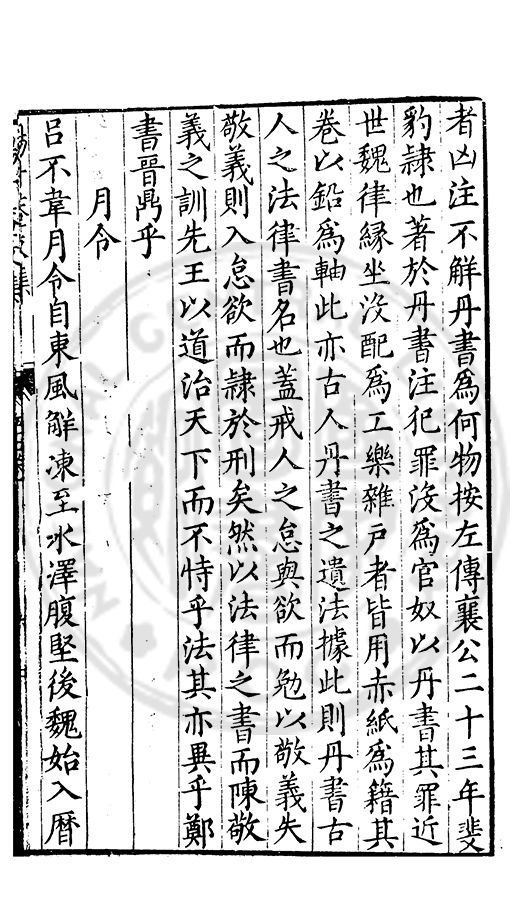 者凶注不解丹書爲何物按左傳襄公二十三年斐
豹隷也著於丹書注犯罪沒爲官奴以丹書其罪近
世魏律縁坐没配爲工樂雜戸者皆用赤紙爲籍其
卷以鉛爲軸此亦古人丹書之遺法據此則丹書古
人之法律書名也蓋戒人之怠與欲而勉以敬義失
敬義則入怠欲而隷於刑矣然以法律之書而陳敬
義之訓先王以道治天下而不恃乎法其亦異乎鄭
書晉鼎乎
月令
吕不韋月令自東風解凍至水澤腹堅後魏始入暦